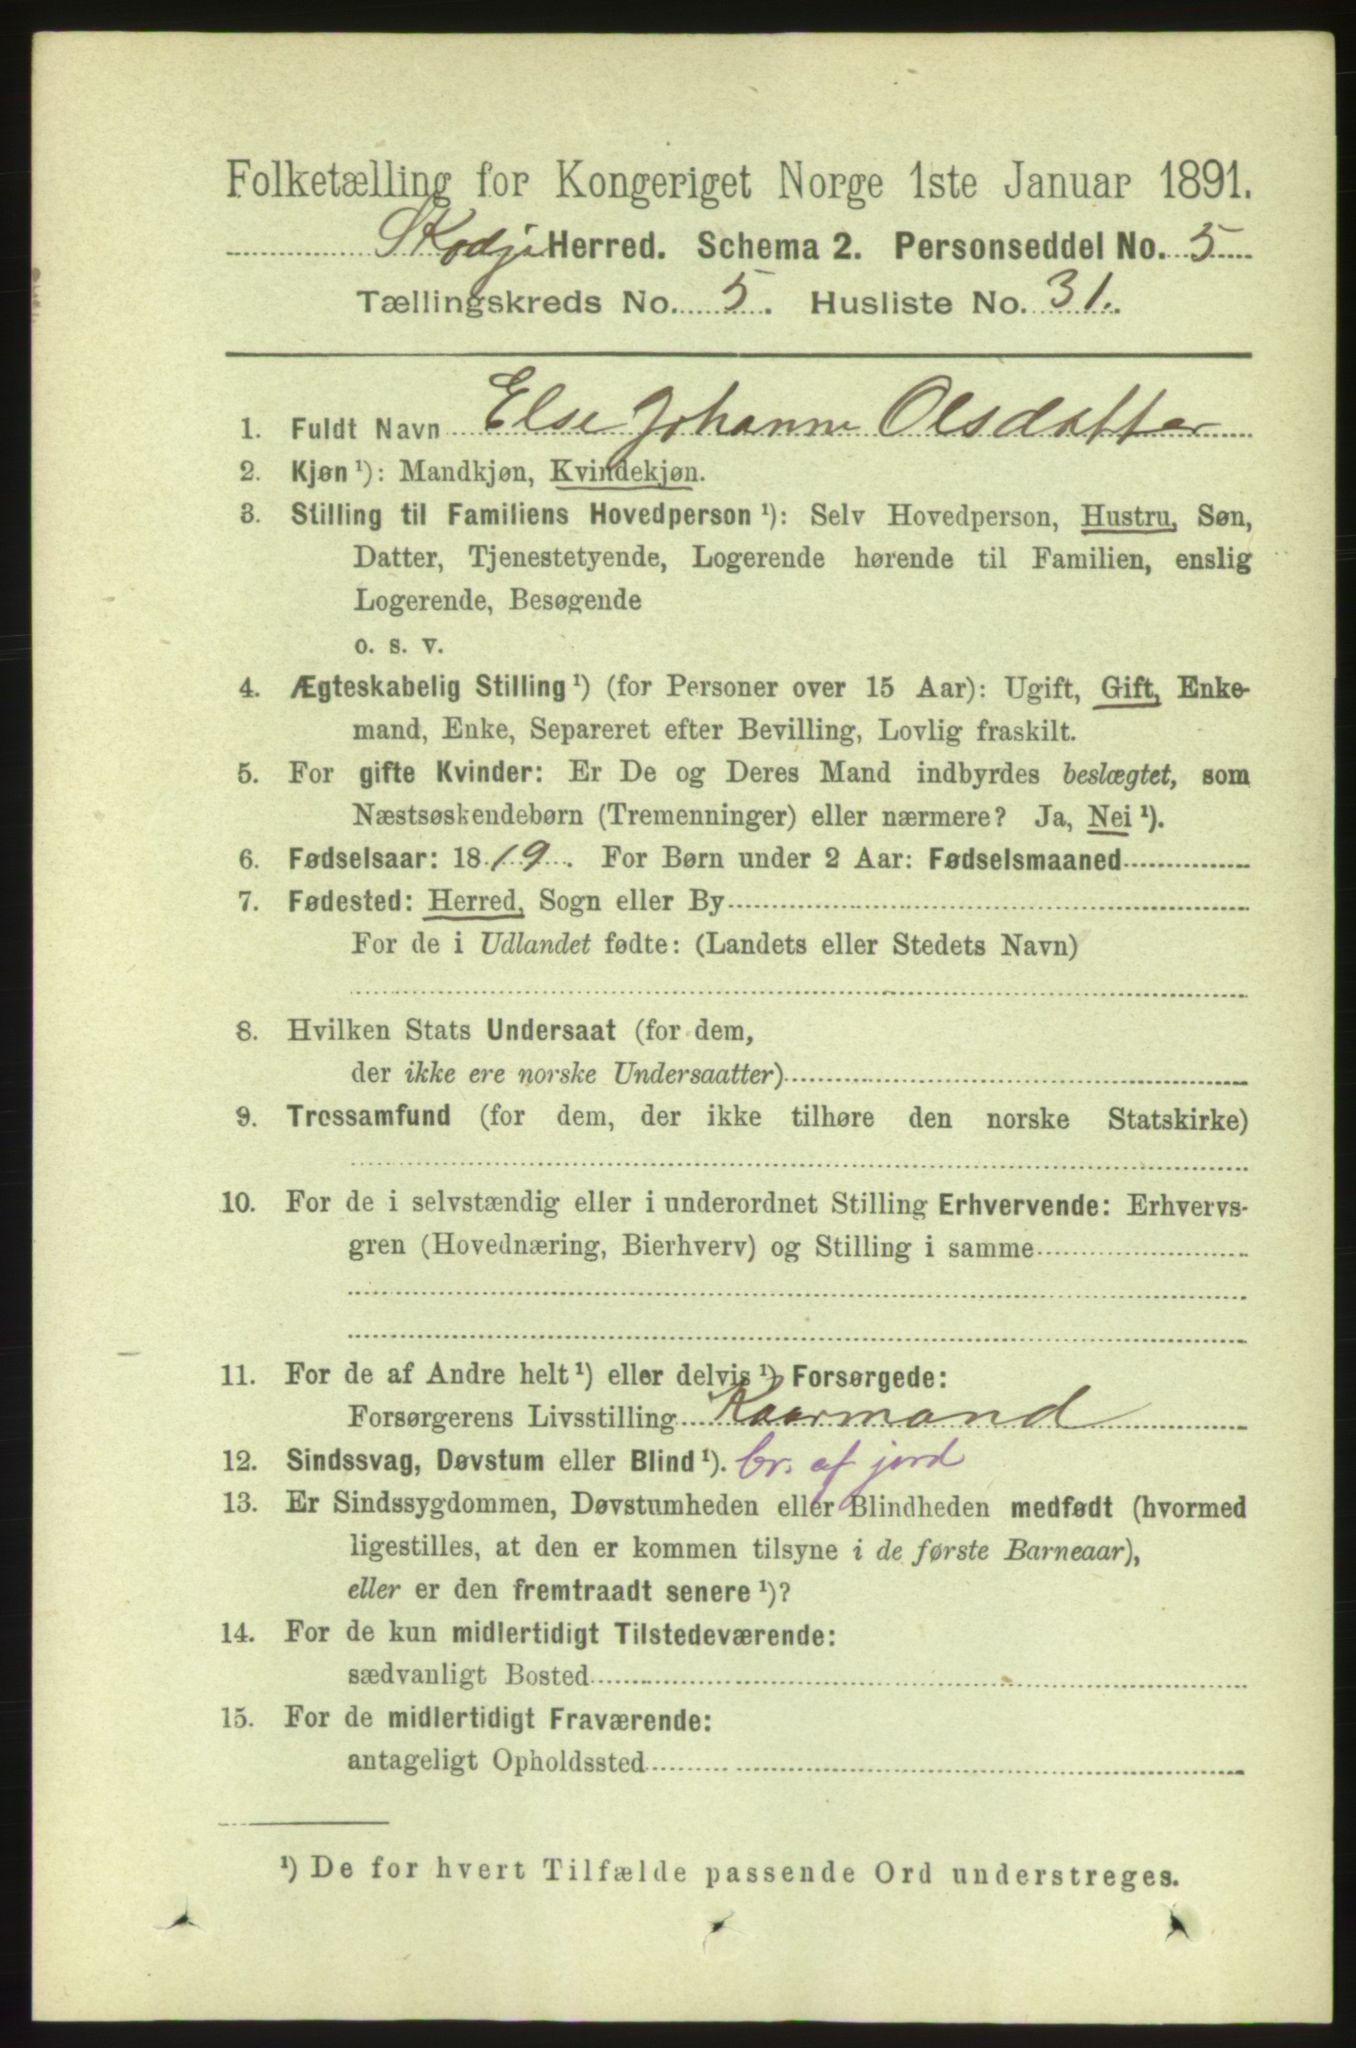 Folketælling for Kongeriget Norge 1ste Januar 1891.
Skodje Herred. Schema 2. Personseddel No. 5
Tællingskreds No. 5. Husliste No. 31.
1. Fuldt Navn Else Johanne Olsdatter
2. Kjøn¹): Mandkjøn, Kvindekjøn.
3. Stilling til Familiens Hovedperson¹): Selv Hovedperson, Hustru, Søn,
Datter, Tjenestetyende, Logerende hørende til Familien, enslig
Logerende, Besøgende
o. s. v.
4. Ægteskabelig Stilling¹) (for Personer over 15 Aar): Ugift, Gift, Enke-
mand, Enke, Separeret efter Bevilling, Lovlig fraskilt.
5. For gifte Kvinder: Er De og Deres Mand indbyrdes beslægtet, som
Næstsøskendebørn (Tremenninger) eller nærmere? Ja, Nei¹).
6. Fødselsaar: 1819. For Børn under 2 Aar: Fødselsmaaned
7. Fødested: Herred, Sogn eller By
For de i Udlandet fødte: (Landets eller Stedets Navn)
8. Hvilken Stats Undersaat (for dem,
der ikke ere norske Undersaatter)
9. Trossamfund (for dem, der ikke tilhøre den norske Statskirke)
10. For de i selvstændig eller i underordnet Stilling Erhvervende: Erhvervs-
gren (Hovednæring, Bierhverv) og Stilling i samme
11. For de af Andre helt¹) eller delvis¹) Forsørgede:
Forsørgerens Livsstilling Kaarmand
12. Sindssvag, Døvstum eller Blind¹). br. af jord
13. Er Sindssygdommen, Døvstumheden eller Blindheden medfødt (hvormed
ligestilles, at den er kommen tilsyne i de første Barneaar),
eller er den fremtraadt senere¹)?
14. For de kun midlertidigt Tilstedeværende:
sædvanligt Bosted
15. For de midlertidigt Fraværende:
antageligt Opholdssted
¹) De for hvert Tilfælde passende Ord understreges.